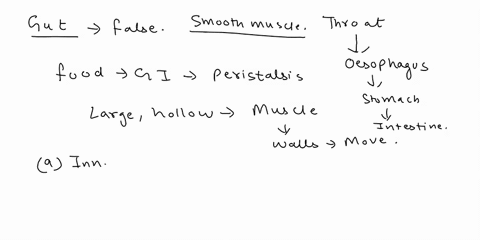 Gut → false. Smooth muscle. Throat
↓
Oesophagus
↓
food → GI → Peristalsis
Stomach
↓
Large, hollow → Muscle
Intestine.
↓
walls → Move.
(a) Inn.